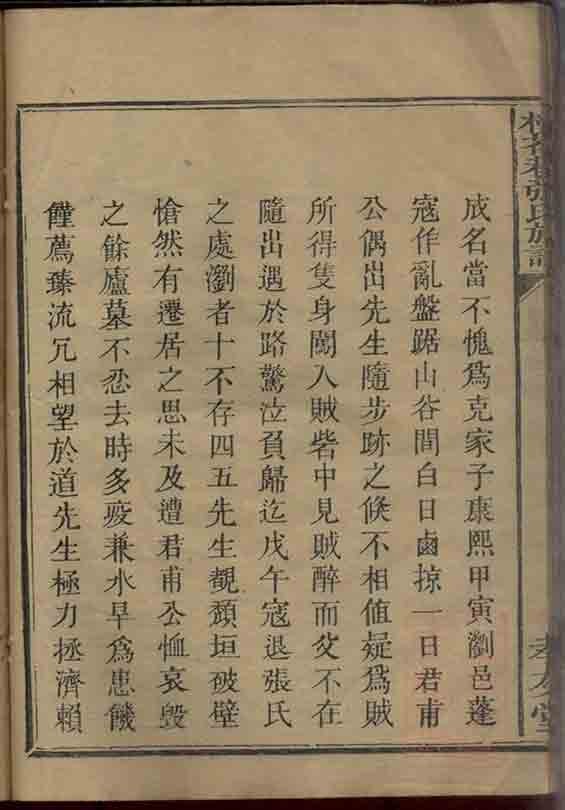 張氏族譜
孝友堂
成名當不愧爲克家子康熙甲寅瀏邑蓬
寇作亂盤踞山谷間白日鹵掠一日君甫
公偶出先生隨步跡之倐不相值疑爲賊
所得隻身闖入賊砦中見賊醉而父不在
隨出遇於路驚泣負歸迄戊午寇退張氏
之處瀏者十不存四五先生覩頽垣破壁
愴然有遷居之思未及遭君甫公恤哀毀
之餘廬墓不忍去時多疫兼水旱爲患饑
饉薦臻流冗相望於道先生極力拯濟賴